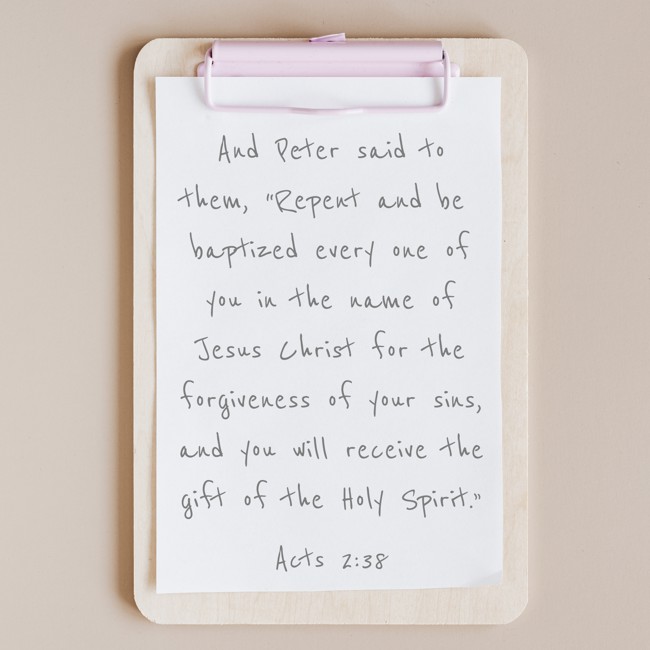 And Peter said to
them, "Repent and be
baptized every one of
you in the name of
Jesus Christ for the
forgiveness of your sins,
and you will receive the
gift of the Holy Spirit."
Acts 2:38